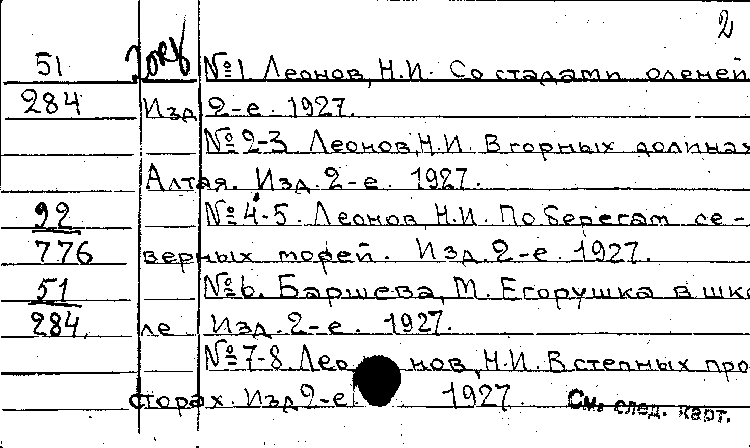 2
51 №1 Леонов, Н.И. Со стадами оленей
284 Изд. 2-е. 1927.
№2-3 Леонов, Н.И. В горных долинах
Алтая. Изд. 2-е. 1927.
92 №4-5. Леонов, Н.И. По берегам се-
776 верных морей. Изд. 2-е. 1927.
51 №6. Баршева, М. Егорушка в шко
284 ле. Изд. 2-е. 1927.
№7-8. Леонов, Н.И. В степных про
сторах. Изд 2-е. 1927.
См. след. карт.